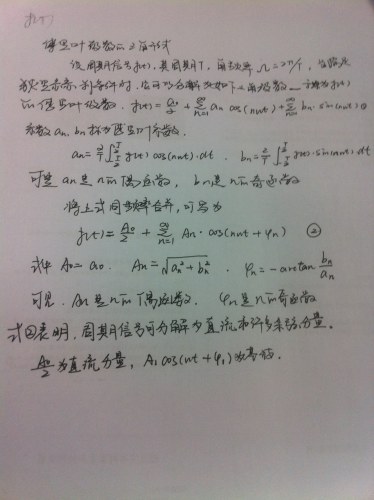 f(t)
傅里叶级数的三角形式
设周期信号f(t),其周期T,角频率Ω=2π/T,当满足
狄里赫利条件时,它可分解为如下三角级数—称为f(t)
的傅里叶级数. f(t)=a₀/2+∑(n=1→∞) an cos(nΩt)+∑(n=1→∞) bn·sin(nΩt)①
系数an, bn称为傅里叶系数.
an=2/T∫(-T/2→T/2) f(t)cos(nΩt)·dt, bn=2/T∫(-T/2→T/2) f(t)·sin(nΩt)dt
可见an是n的偶函数, bn是n的奇函数
将上式同频率合并,可写为
f(t)=A₀/2+∑(n=1→∞) An·cos(nΩt+φn) ②
式中A₀=a₀. An=√(an²+bn²). φn=-arctan bn/an
可见.An是n的偶函数. φn是n的奇函数
式②表明,周期信号可分解为直流和许多余弦分量。
A₀/2为直流分量, A₁cos(Ωt+φ₁)为基波.